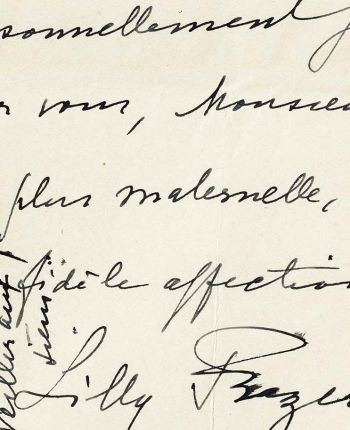 sonnellement
r vous, Monsieu
plus maternelle,
fidèle affection
Lilly Frazer
tiens"